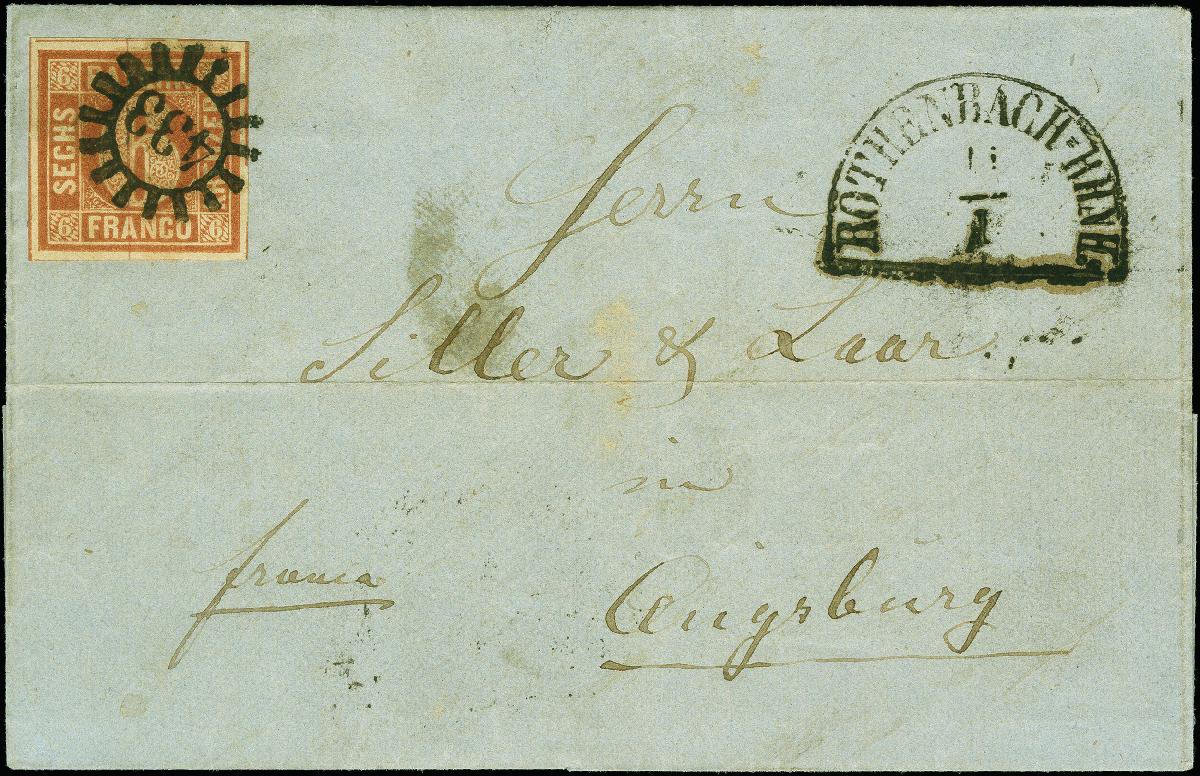 6
SECHS
FRANCO
6 6
433
ROTHENBACH-BHNH
11
1
Herrn
Siller & Laar
in
Augsburg
franco